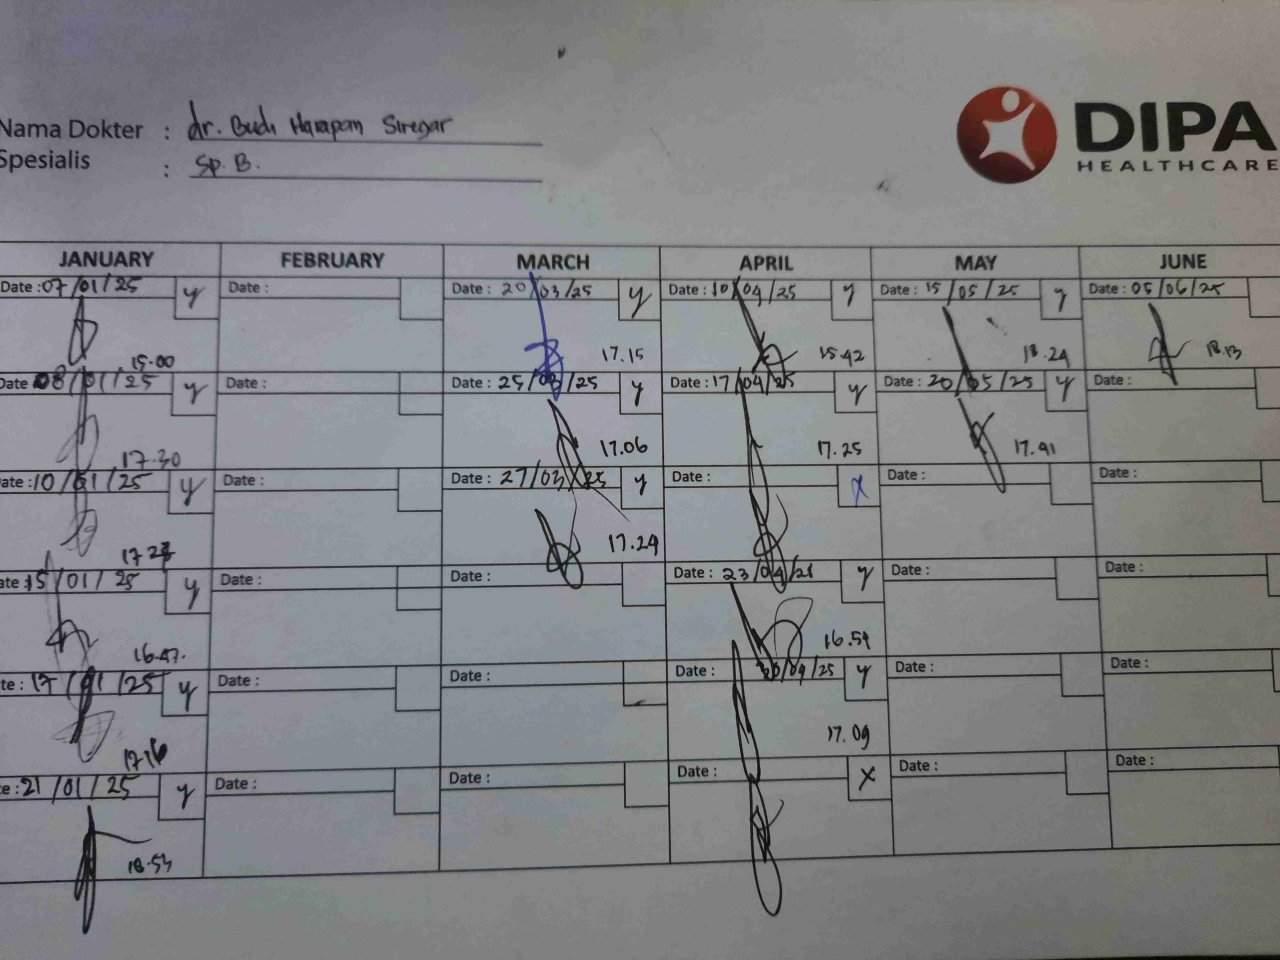 Nama Dokter : dr. Budi Harapan Siregar
Spesialis : Sp. B.
DIPA
HEALTHCARE
JANUARY FEBRUARY MARCH APRIL MAY JUNE
Date : 07/01/25 y Date : Date : 20/03/25 y Date : 10/04/25 y Date : 15/05/25 y Date : 05/06/25
15.00 17.15 15.42 18.24 18.13
Date 08/01/25 y Date : Date : 25/03/25 y Date : 17/04/25 y Date : 20/05/25 y Date :
17.30 17.06 17.25 17.41
ate : 10/01/25 y Date : Date : 27/03/25 y Date : x Date : Date :
17.24
ate 15/01/25 y Date : Date : Date : 23/04/25 y Date : Date :
16.47. 16.59
te : 17/01/25 y Date : Date : Date : 30/04/25 y Date : Date :
17.16 17.09
te : 21/01/25 y Date : Date : Date : x Date : Date :
18.53